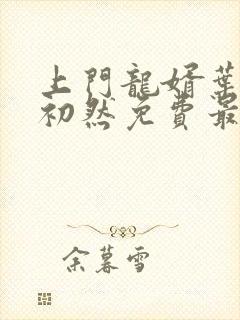 上門龍婿葉
初然免費最
余暮雪